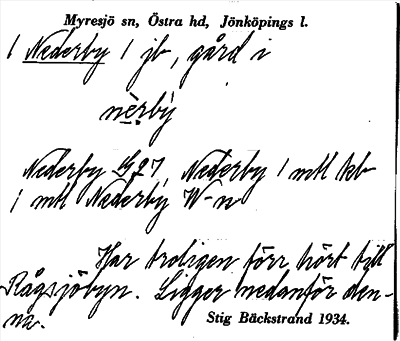 Myresjö sn, Östra hd, Jönköpings l.
1 Nederby 1 jb, gård i
nè̱rbỳ̱
Nederby 1727, Nederby 1 mtl kb
1 mtl Nederby W-n
Har troligen förr hört till
Rågsjöbyn. Ligger nedanför den-
na.
Stig Bäckstrand 1934.